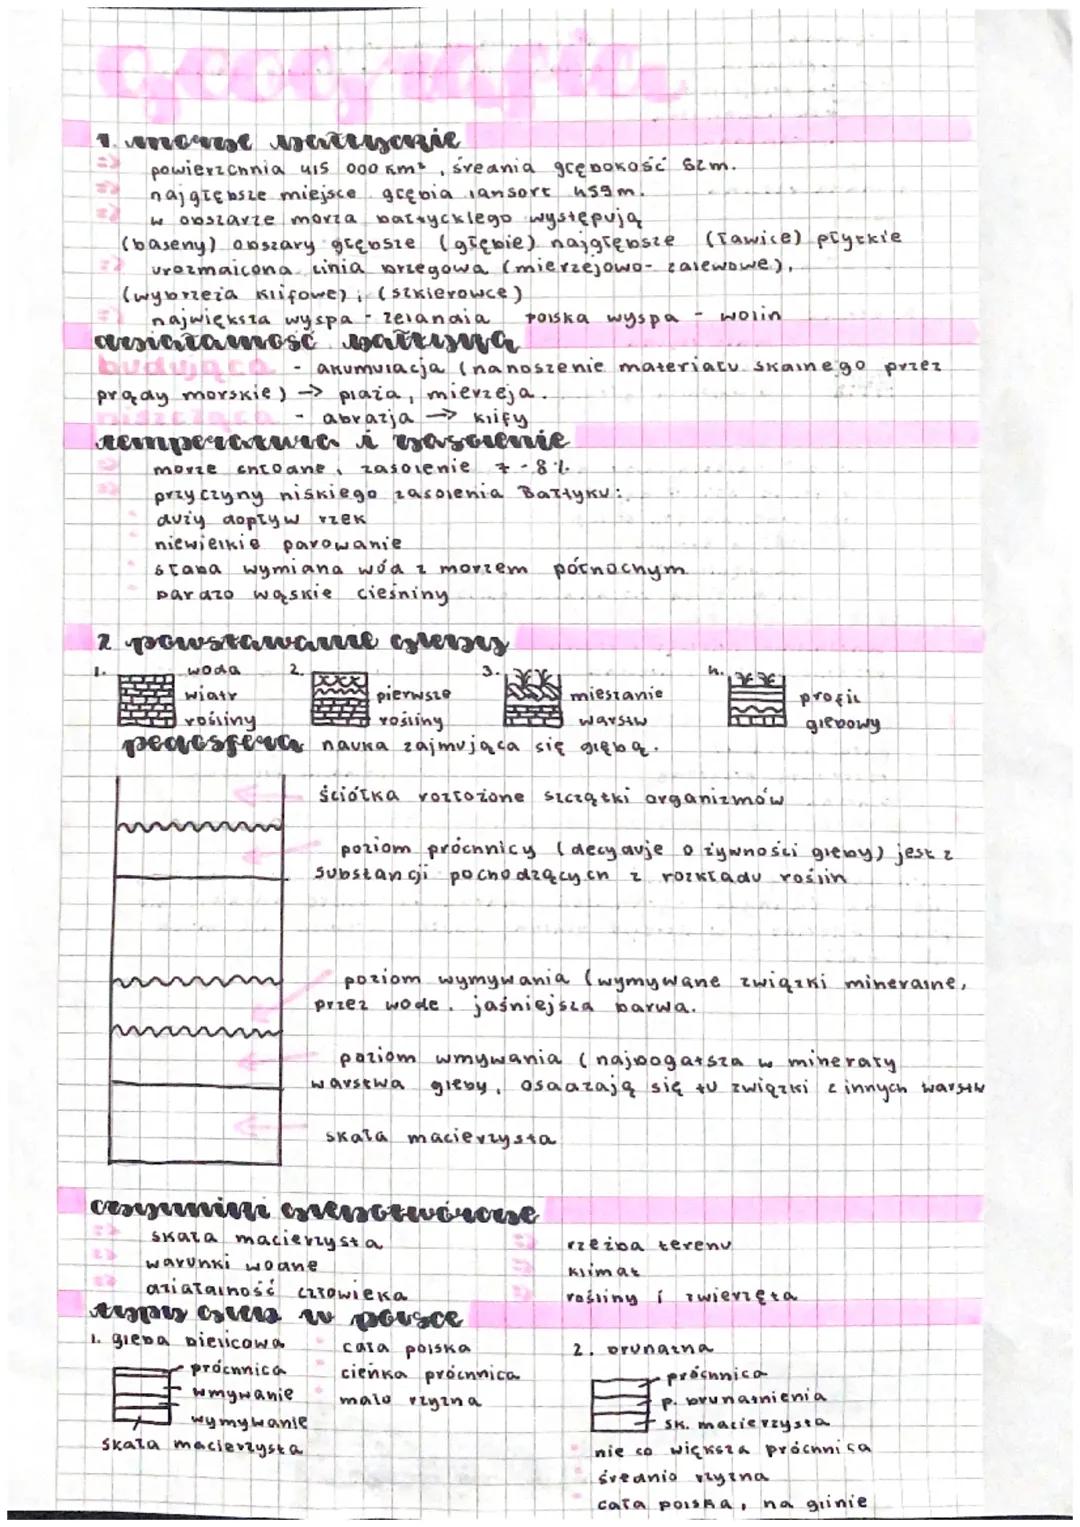 Geografia
1. morze bałtyckie
=> powierzchnia 415 000 km², średnia głębokość 52m.
=> najgłębsze miejsce głębia lansort 459m.
=> w obszarze morza bałtyckiego występują
(baseny) obszary głębsze (głębie) najgłębsze (ławice) płytkie
=> urozmaicona linia brzegowa (mierzejowo-zalewowe),
(wybrzeża klifowe); (szkierowce)
=> największa wyspa - zelandia polska wyspa - wolin
działalność bałtyku
budująca - akumulacja (nanoszenie materiału skalnego przez
prądy morskie) → plaża, mierzeja.
niszcząca - abrazja → klify
temperatura i zasolenie
=> morze chłodne, zasolenie 7-8‰
=> przyczyny niskiego zasolenia Bałtyku:
• duży dopływ rzek
• niewielkie parowanie
• słaba wymiana wód z morzem północnym
• bardzo wąskie cieśniny
2 powstawanie gleby
1. woda wiatr rośliny
2. pierwsze rośliny
3. mieszanie warstw
4. profil glebowy
pedosfera nauka zajmująca się glebą.
ściółka rozłożone szczątki organizmów
poziom próchnicy (decyduje o żywności gleby) jest z
substancji pochodzących z rozkładu roślin
poziom wymywania (wymywane związki mineralne,
przez wodę. jaśniejsza barwa.
poziom wmywania (najbogatsza w minerały
warstwa gleby, osadzają się tu związki z innych warstw
skała macierzysta
czynniki glebotwórcze
=> skała macierzysta
=> warunki wodne
=> działalność człowieka
=> rzeźba terenu
=> klimat
=> rośliny i zwierzęta
typy gleb w polsce
1. gleba bielicowa
próchnica
wmywanie
wymywanie
skała macierzysta
• cała polska
• cieńka próchnica
• mało żyzna
2. brunatna
próchnica
p. brunatnienia
sk. macierzysta
• nie co większa próchnica
• średnio żyzna
• cała polska, na glinie